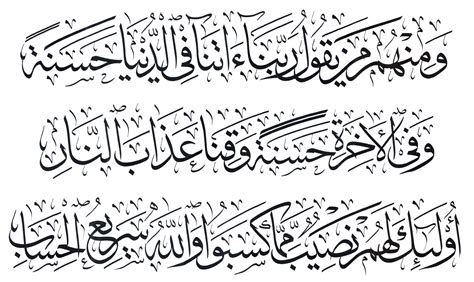 وَمِنْهُم مَّن يَقُولُ رَبَّنَا ءَاتِنَا فِي الدُّنْيَا حَسَنَةً
وَفِي الْأَخِرَةِ حَسَنَةً وَقِنَا عَذَابَ النَّارِ
أُولَٰئِكَ لَهُمْ نَصِيبٌ مِّمَّا كَسَبُوا وَاللَّهُ سَرِيعُ الْحِسَابِ